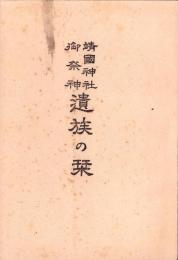 靖國神社
御祭神
遺族の栞